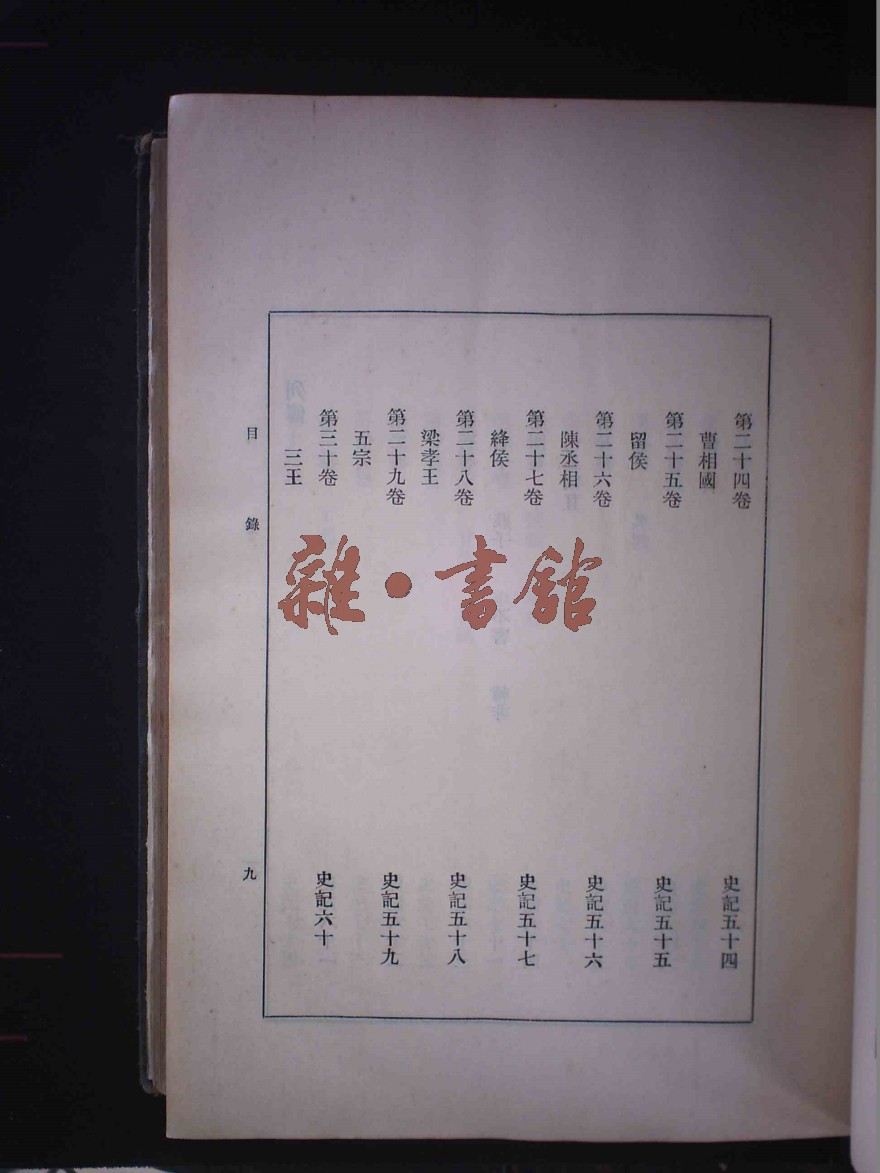 第二十四卷 史記五十四
曹相國
第二十五卷 史記五十五
留侯
第二十六卷 史記五十六
陳丞相
第二十七卷 史記五十七
絳侯
第二十八卷 史記五十八
梁孝王
第二十九卷 史記五十九
五宗
第三十卷 史記六十
三王
目錄 九
雜·書館